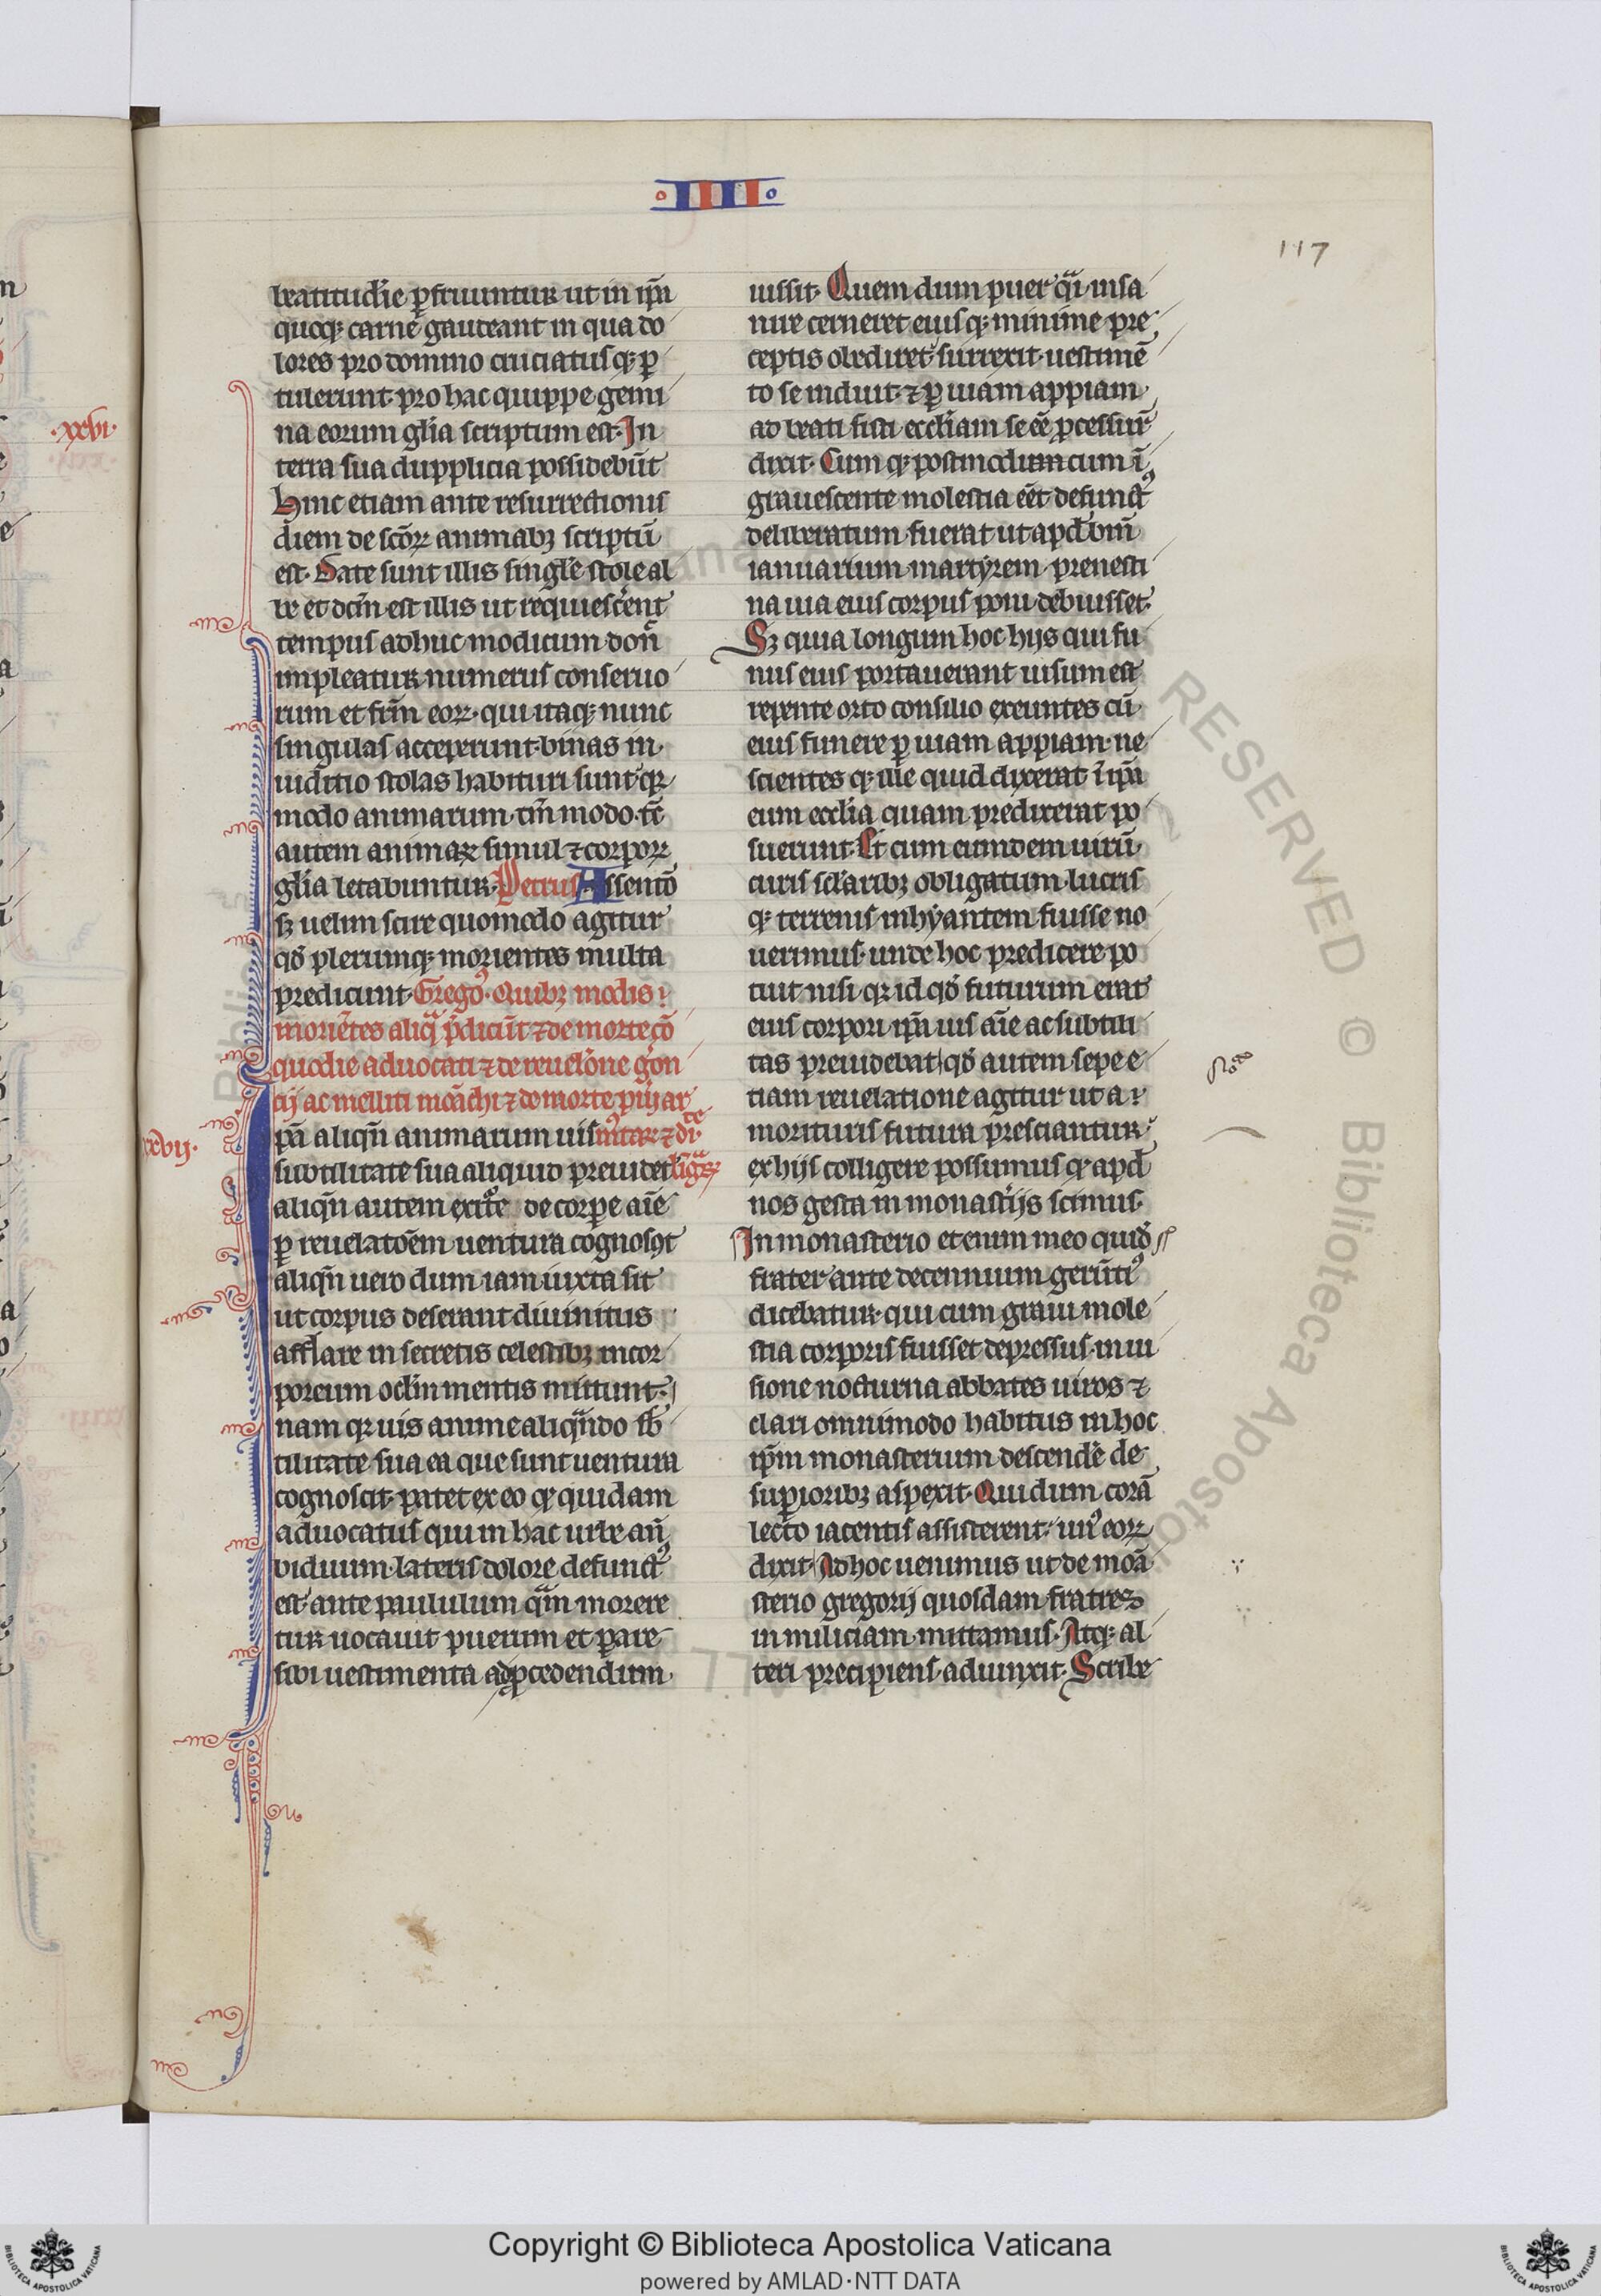 IIII
117
beatitudĩe ꝑfruuntur ut in ip̃a
quoqꝫ carne gaudeant in qua do
lores pro domino cruciatusqꝫ ꝑ
tulerunt. pro hac quippe gemi
na eorum gl̃ia scriptum est. In
terra sua dupplicia possidebũt
hinc etiam ante resurrectionis
diem de sc̃oꝝ animabꝫ scriptũ
est. Date sunt illis singl̃e stole al
be et dc̃m est illis ut requiesc̃ent
tempus adhuc modicum don̄
impleatur numerus conseruo
rum et fr̃m eoꝝ. qui itaqꝫ nunc
singulas acceperunt. binas in
iuditio stolas habituri sunt. qꝛ
modo animarum. tm̃ modo. tc̃
autem animaꝝ simul ⁊ corpoꝝ
gl̃ia letabuntur. Petrus Assentõ
sꝫ uelim scire quomodo agitur
qđ plerumqꝫ morientes multa
predicunt. Gregoꝰ. Quibꝫ modis
moriẽtes aliq̃ p̃dicũt ⁊ de morte cõ
quodie aduocati ⁊ de reuelõne gõn
tij ac melliti mõachi ⁊ de morte pueri ar
.xxvi.
xxvij.
pã aliqñ animarum uis mẽtar ⁊ di
subtilitate sua aliquid preuidet
aliqñ autem exit᷑e de corpe aĩe
ꝑ reuelatõem uentura cognosc̃t
aliqñ uero dum iam iuxta sit
ut corpus deserant diuinitus
afflate in secretis celestibꝫ incor
poreum oclm̃ mentis mittunt.
nam qꝛ uis anime aliqñdo sb̃
tilitate sua ea que sunt uentura
cognoscit. patet ex eo qꝫ quidam
aduocatus qui in hac urbe añ
biduum. lateris dolore defunctꝰ
est. ante paululum q̃m morere
tur uocauit puerum et parare
sibi uestimenta ad ꝓcedendum
iussit. Quem dum puer q̃i insa
nire cerneret eiusqꝫ minime pre
ceptis obediret. surrexit. uestimẽ
to se induit. ⁊ ꝑ uiam appiam
ad beati sisti eccl̃iam se ẽe ꝓcessur̃
dixit. Cumqꝫ postmodum cum ĩ
grauescente molestia eẽt defunctꝰ
deliberatum fuerat ut apđ bm̃
ianuarium martyrem prenesti
na uia eius corpus poni debuisset.
Sꝫ quia longum hoc hijs qui fu
nus eius portauerant uisum est
repente orto consilio exeuntes cũ
eius funere ꝑ uiam appiam. ne
scientes qꝫ ille quid dixerat ĩ ip̃a
eum eccl̃ia quam predixerat po
suerunt. Et cum eumdem uirũ
curis scl̃aribꝫ obligatum. lucris
qꝫ terrenis inhyantem fuisse no
uerimus. unde hoc predicere po
tuit nisi qꝛ id qđ futurum erat
eius corpori ip̃a uis aĩe ac subtili
tas preuidebat. qđ autem sepe e
tiam reuelatione agitur ut a
morituris futura presciantur.
ex hijs colligere possumus qꝫ apđ
nos gesta in monast̃ijs scimus.
In monasterio etenim meo quiđ
frater ante decennium gerũtiꝰ
dicebatur. qui cum graui mole
stia corporis fuisset depressus. in ui
sione nocturna abbates uiros ⁊
clari omnimodo habitus in hoc
ip̃m monasterium descendẽ de
suꝑioribꝫ aspexit. Qui dum corã
lecto iacentis assisterent. unꝰ eoꝝ
dixit. Ad hoc uenimus ut de monã
sterio gregorij quosdam fratres
in miliciam mittamus. Atqꝫ al
teri precipiens adiunxit. Scribe
Copyright © Biblioteca Apostolica Vaticana
powered by AMLAD·NTT DATA